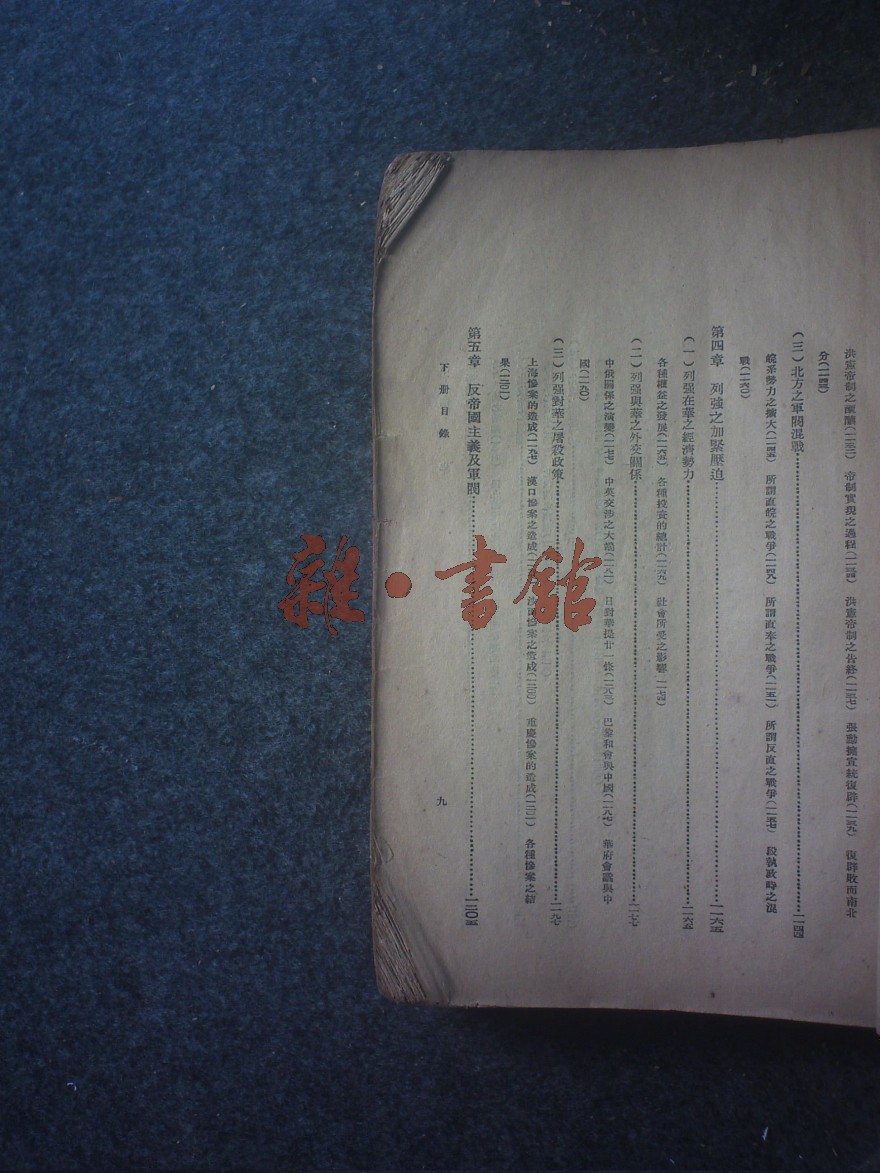 洪憲帝制之醞釀(一一三三) 帝制實現之過程(一一三四) 洪憲帝制之告終(一一三七) 張勳擁宣統復辟(一一三九) 復辟敗而南北
分(一一四四)
(三)北方之軍閥混戰⋯⋯一一四四
皖系勢力之擴大(一一四五) 所謂直皖之戰爭(一一四九) 所謂直奉之戰爭(一一五一) 所謂反直之戰爭(一一五七) 段執政時之混
戰(一一六〇)
第四章 列強之加緊壓迫⋯⋯一一六五
(一)列强在華之經濟勢力⋯⋯一一六五
各種權益之發展(一一六五) 各種投資的總計(一一六九) 社會所受之影響(一一七四)
(二)列强與華之外交關係⋯⋯一一七七
中俄關係之演變(一一七七) 中英交涉之大端(一一八一) 日對華提廿一條(一一八三) 巴黎和會與中國(一一八七) 華府會議與中
國(一一九〇)
(三)列强對華之屠殺政策⋯⋯一一九七
上海慘案的造成(一一九七) 漢口慘案之造成 慘案之造成(一二〇〇) 重慶慘案的造成(一二〇一) 各種慘案之結
果(一二〇二)
第五章 反帝國主義及軍閥⋯⋯一二〇五
下册目錄 九
雜·書館